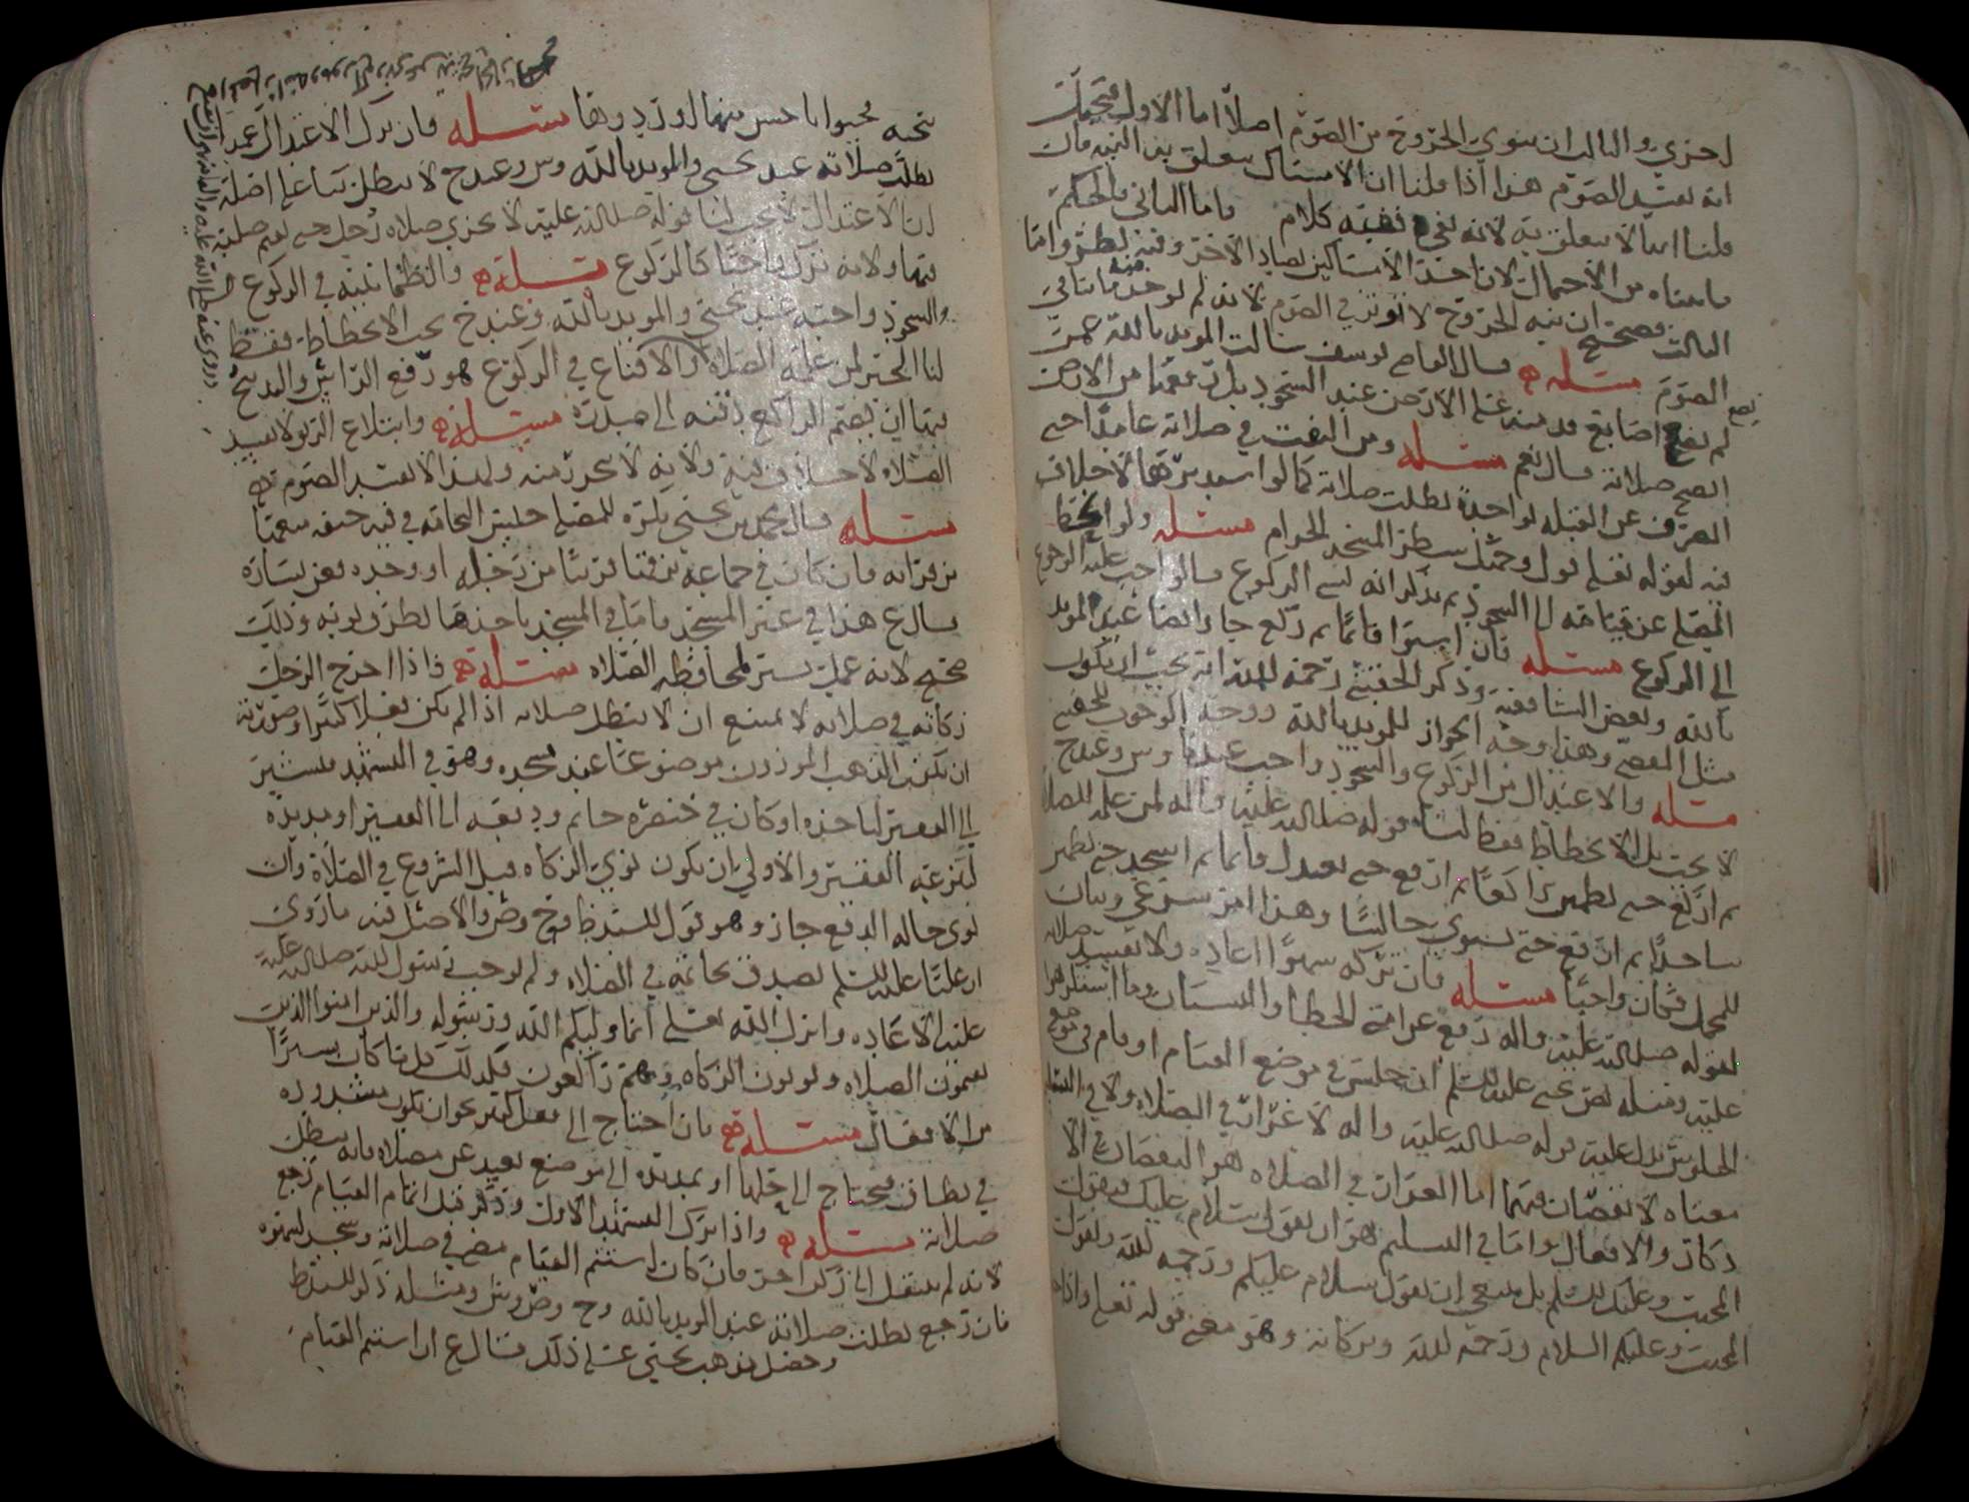 لحزي والثالث ان ينوي الخروج من الصوم اصلا اما الاول فيحتمل
انه يفسد الصوم هذا اذا قلنا ان الامساك يتعلق به النية فان
قلنا انها لا يتعلق به لانه نفي ففيه كلام واما الثاني فالحكم
ما معناه من الاحتمال لان احد الامساكين يضاد الاخر وفيه نظر واما
الثالث فصحيح ان نية الخروج لا تؤثر في الصوم لانه لم يوجد منه ما ينافي
الصوم مسئله قال القاضي يوسف سالت المويد بالله عمن
لم يضع اصابع قدميه على الارض عند السجود بل رفعها من الارض
اتصح صلاته قال نعم مسئله ومن التفت في صلاته عامدا حتى
انحرف عن القبلة لواحدة بطلت صلاته كما لو استدبرها لا خلاف
فيه لقوله تعلى فول وجهك شطر المسجد الحرام مسئله ولو انحط
المصلي عن قيامه الى السجود ثم تذكر انه نسي الركوع قالوا وجب عليه الرجوع
الى الركوع مسئله فان استوا قائما ثم ركع جاز ايضا عند المويد
بالله وبعض الشافعية وذكر الحقيني رحمه الله انه يجب ان يكون
مثل وهذا وجه الجواز للمويد بالله ووجه الوجوب للحقيني
مسئله والاعتدال من الركوع والسجود واجب عندنا وش وعند ح
لا يجب بل الانحطاط فقط لنا قوله صلى الله عليه واله لمن علمه الصلاة
ثم اركع حتى تطمئن راكعا ثم ارفع حتى تعتدل قائما ثم اسجد حتى تطمئن
ساجدا ثم ارفع حتى تستوي جالسا وهذا امر شرعي وبيان
للمجمل فكان واجبا مسئله فان تركه سهوا اعاده ولا تفسد صلاته
لقوله صلى الله عليه واله رفع عن امتي الخطا والنسيان وما استكرهوا
عليه ومثله نص يحيى عليه السلم ان جلس في موضع القيام او قام في موضع
الجلوس يدل عليه قوله صلى الله عليه واله لا غرار في الصلاة ولا في التسليم
معناه لا نقصان فيهما اما الغرار في الصلاه هو النقصان في الا
ركان والافعال واما في التسليم فهو ان يقول سلام عليك فيقول
المجيب وعليك السلم بل ينبغي ان يقول سلام عليكم ورحمة الله ويقول
المجيب وعليكم السلام ورحمة الله وبركاته وهو معنى قوله تعلى واذا
بتحيه فحيوا باحسن منها او ردوها مسئله فان ترك الاعتدال عمدا
بطلت صلاته عند يحيى والمويد بالله وش وعند ح لا تبطل بنا على اصله
ان الاعتدال لا يجب لنا قوله صلى الله عليه لا تجزي صلاة رجل حتى يقيم صلبه
فيها ولانه ترك واجبا كالركوع مسئله والطمانينه في الركوع
والسجود واجبه عند يحيى والمويد بالله وعند ح يجب الانحطاط فقط
لنا الخبر لمن علمه الصلاة والاقناع في الركوع هو رفع الراس والتدبيح
فيها ان يضم الراكع ذقنه الى صدره مسئله وابتلاع الريق لا يفسد
الصلاه لا خلاف فيه ولانه لا يحترز منه ولهذا لا يفسد الصوم
مسئله قال محمد بن يحيى يكره للمصلي حبس النخامه في فيه خيفه
من قراته فان كان في جماعة بزقها قريبا من رجله او وحده فعن يساره
قال ع هذا في غير المسجد فاما في المسجد ياخذها بطرف ثوبه وذلك
صحيح لانه عمل يسير لمحافظه الصلاه مسئله فاذا اخرج الرجل
زكاته في صلاته لا يمتنع ان لا تبطل صلاته اذا لم يكن فعلا كثيرا وصورته
ان يكون الذهب الموزون موضوعا عند مسجده وهو في التشهد فيشير
الى الفقير لياخذه او كان في خنصره خاتم ودفعه الى الفقير او مد يده
لينزعه الفقير والاولى ان يكون نوى الزكاه قبل الشروع في الصلاة وان
نوى حاله الدفع جاز وهو قول للسيد ظ وح وش والاصل فيه ما روي
ان عليا عليه السلم تصدق بخاتمه في الصلاه ولم يوجب رسول الله صلى الله عليه
عليه الاعاده وانزل الله تعلى انما وليكم الله ورسوله والذين امنوا الذين
يقيمون الصلاه ويوتون الزكاه وهم راكعون فكذلك كل ما كان يسيرا
من الافعال مسئله فان احتاج الى فعل كثير نحو ان تكون مشدوده
في نطاق فيحتاج الى حلها او يمد يده الى موضع بعيد عن مصلاه فانه تبطل
صلاته مسئله واذا ترك التشهد الاول وذكر قبل اتمام القيام رجع
لانه لم ينتقل الى ركن اخر فان كان استتم القيام مضى في صلاته وسجد لسهوه
فان رجع بطلت صلاته عند المويد بالله وح وص وش ومثله ذكر للسيد ظ
وحصل مذهب يحيى على ذلك فقال ع ان استتم القيام